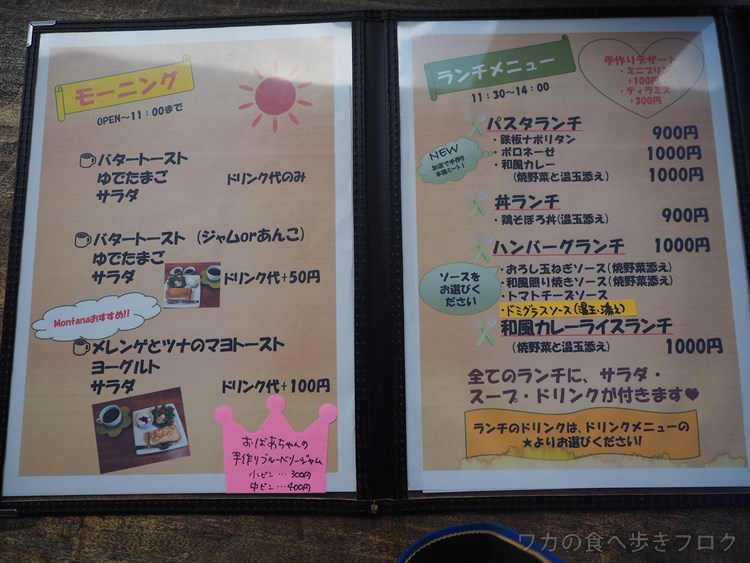 モーニング
OPEN～11：00まで
バタートースト
ゆでたまご
サラダ ドリンク代のみ
バタートースト (ジャムorあんこ)
ゆでたまご
サラダ ドリンク代+50円
Montanaおすすめ!!
メレンゲとツナのマヨトースト
ヨーグルト
サラダ ドリンク代+100円
おばあちゃんの
手作りブルーベリージャム
小ビン…300円
中ビン…400円
ランチメニュー
11：30～14：00
手作りデザート
・ミニプリン
+100円
・ティラミス
+300円
パスタランチ
・鉄板ナポリタン 900円
・ボロネーゼ 1000円
・和風カレー 1000円
(焼野菜と温玉添え)
NEW
お店で手作り
本格ミート!
丼ランチ
・鶏そぼろ丼(温玉添え) 900円
ハンバーグランチ 1000円
ソースを
お選び
ください
・おろし玉ねぎソース(焼野菜添え)
・和風照り焼きソース(焼野菜添え)
・トマトチーズソース
・ドミグラスソース(温玉添え)
和風カレーライスランチ
(焼野菜と温玉添え) 1000円
全てのランチに、サラダ・
スープ・ドリンクが付きます♥
ランチのドリンクは、ドリンクメニューの
★よりお選びください!
ワカの食べ歩きブログ